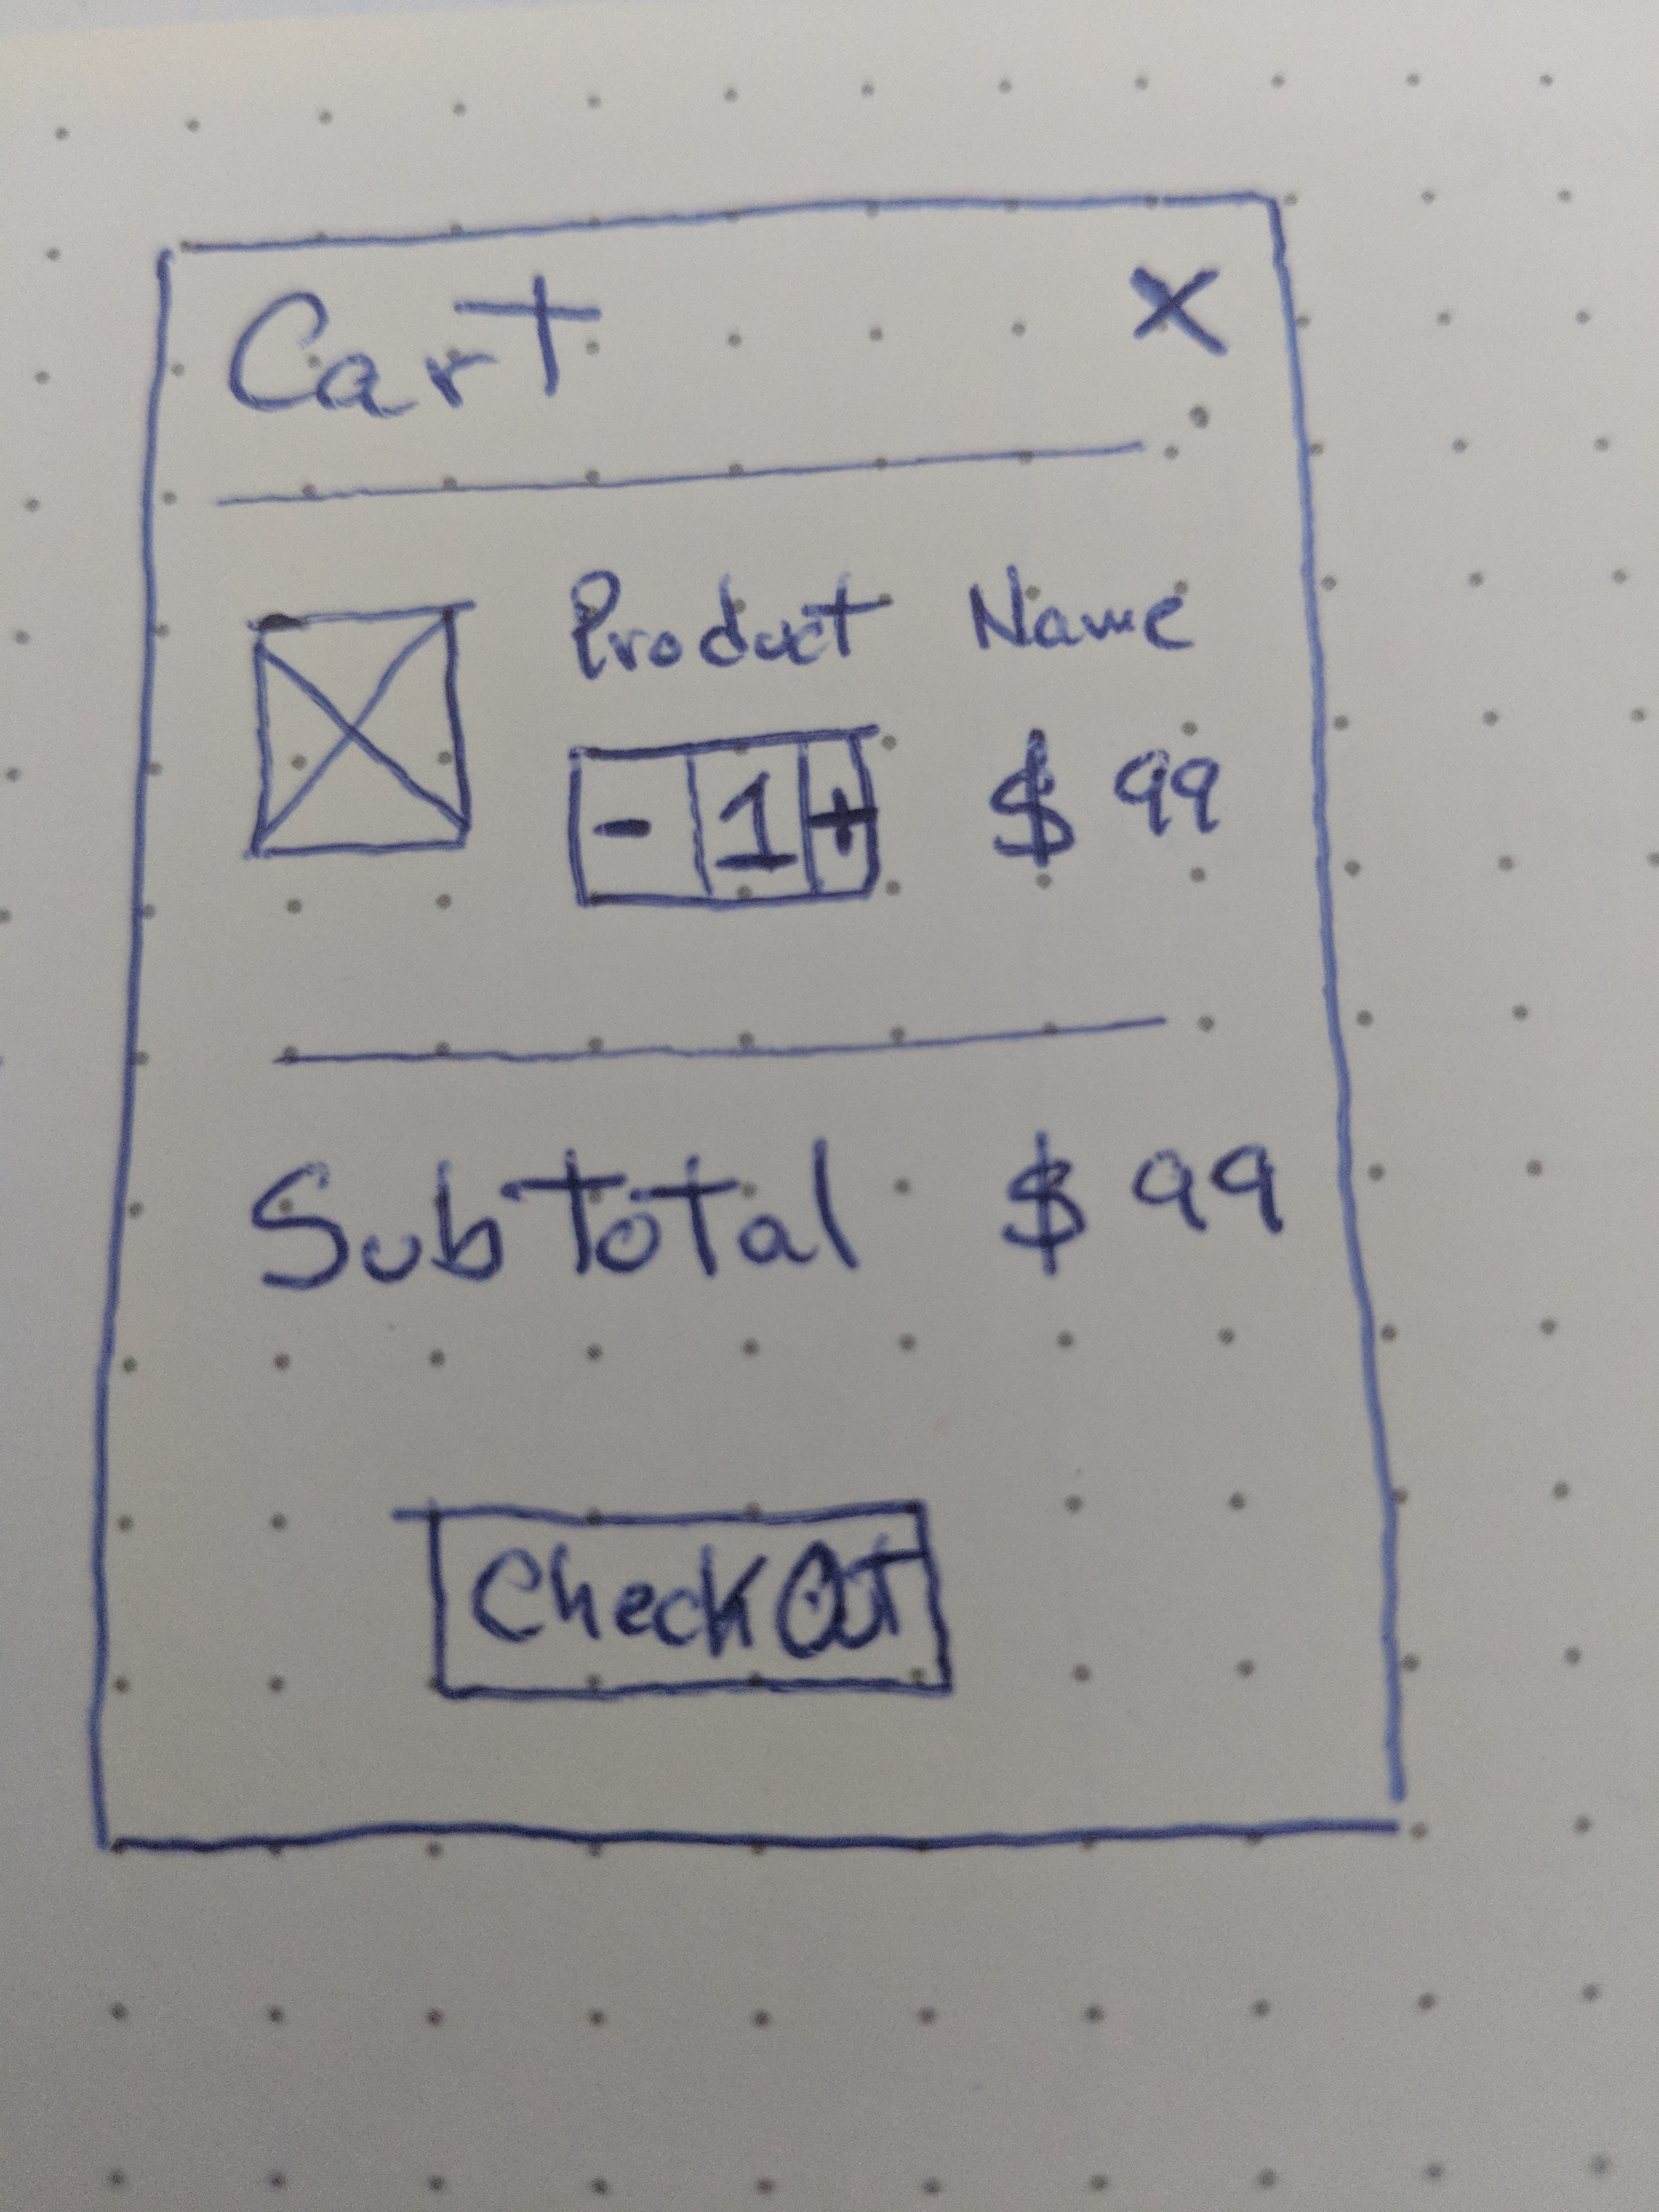 Cart X
Product Name
- 1 + $ 99
Subtotal $ 99
CheckOut